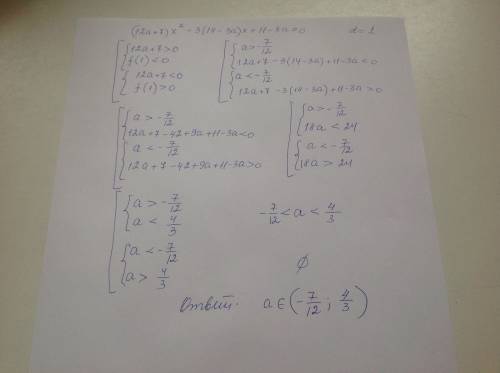 (12a+7)x² - 3(14-3a)x + 11-3a = 0    d=1
[ { 12a+7>0
f(1)<0
{ 12a+7<0
f(1)>0
[ { a>-7/12
12a+7-3(14-3a)+11-3a<0
{ a<-7/12
12a+7-3(14-3a)+11-3a>0
[ { a>-7/12
12a+7-42+9a+11-3a<0
{ a<-7/12
12a+7-42+9a+11-3a>0
[ { a>-7/12
18a<24
{ a<-7/12
18a>24
[ { a>-7/12
a<4/3
{ a<-7/12
a>4/3
-7/12<a<4/3
∅
Ответ: a∈(-7/12; 4/3)